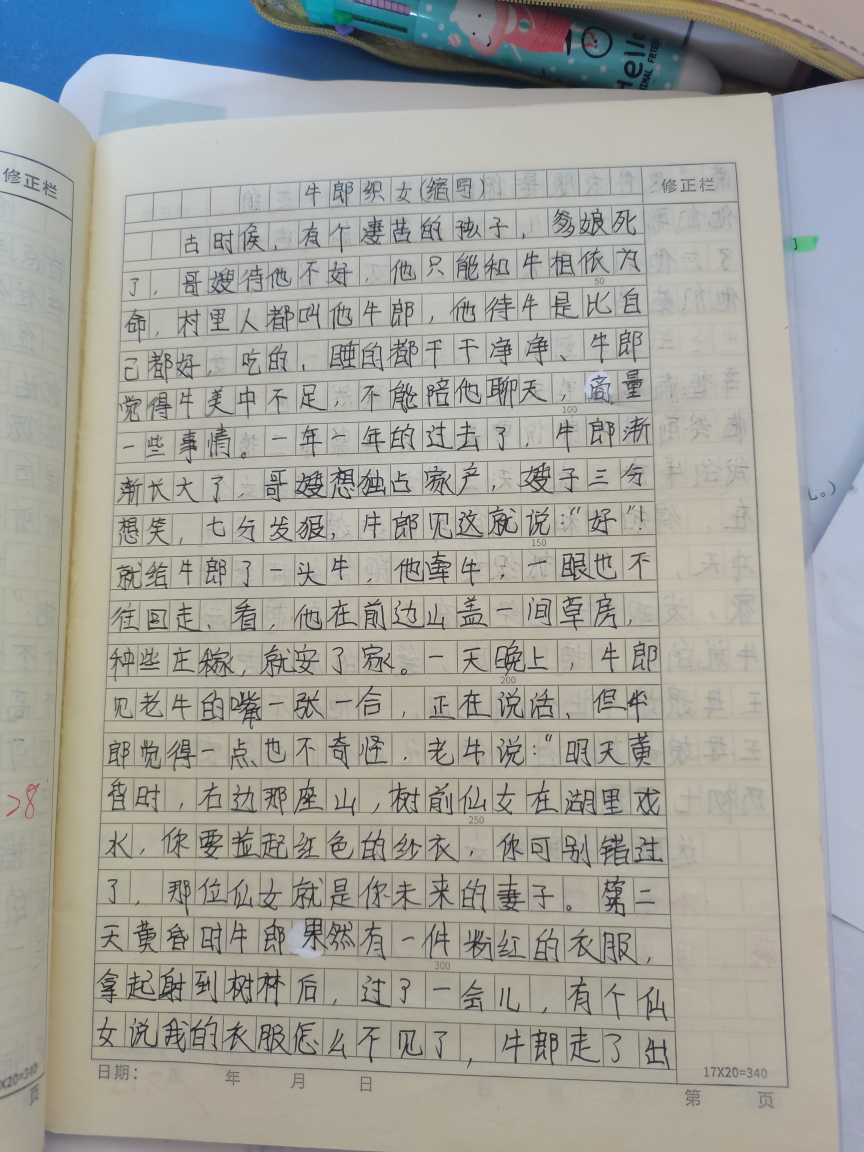 Hello
修正栏
牛郎织女(缩写)
修正栏
古时候，有个凄苦的孩子，爹娘死
了，哥嫂待他不好，他只能和牛相依为
50
命，村里人都叫他牛郎，他待牛是比自
己都好，吃的、睡的都干干净净、牛郎
觉得牛美中不足，不能陪他聊天，商量
100
一些事情。一年一年的过去了，牛郎渐
渐长大了，哥嫂想独占家产，嫂子三分
想笑，七分发狠，牛郎见这就说：“好”！
150
就给牛郎了一头牛，他牵牛，一眼也不
往回走、看，他在前边山盖一间草房，
种些庄稼，就安了家。一天晚上，牛郎
200
见老牛的嘴一张一合，正在说话、但牛
郎觉得一点也不奇怪．老牛说：“明天黄
昏时，右边那座山，树前仙女在湖里戏
250
水，你要拉起红色的纱衣，你可别错过
了，那位仙女就是你未来的妻子。第二
天黄昏时牛郎果然有一件粉红的衣服，
300
拿起射到树林后，过了一会儿，有个仙
女说我的衣服怎么不见了，牛郎走了出
17X20=340
日期： 年 月 日
第 页
>8
X20=340
页